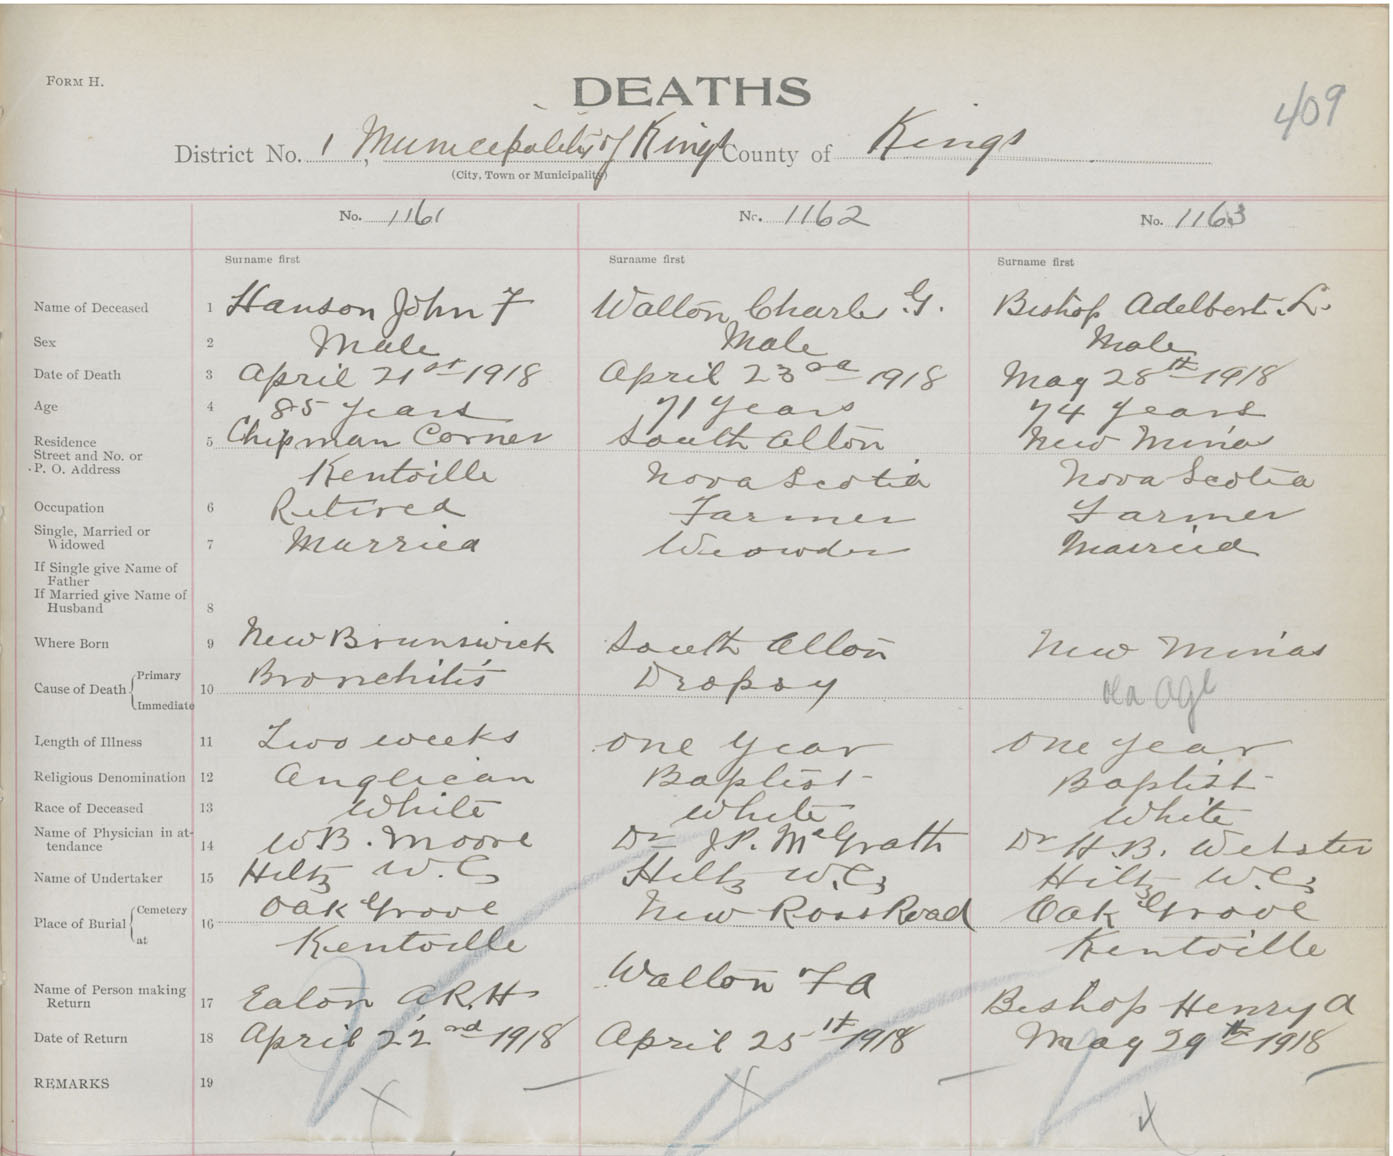 FORM H.
DEATHS
409
District No. 1 Municipality of Kings County of Kings
(City, Town or Municipality)
No. 1161 No. 1162 No. 1163
Surname first Surname first Surname first
Name of Deceased 1 Hanson John F Walton Charles G. Bishop Adelbert. L.
Sex 2 Male Male Male
Date of Death 3 April 21st 1918 April 23rd 1918 May 28th 1918
Age 4 85 years 71 years 74 years
Residence 5 Chipman Corner South Alton New Minas
Street and No. or
P. O. Address Kentville Nova Scotia Nova Scotia
Occupation 6 Retired Farmer Farmer
Single, Married or
Widowed 7 Married Widower Married
If Single give Name of
Father
If Married give Name of
Husband 8
Where Born 9 New Brunswick South Alton New Minas
Cause of Death Primary Bronchitis Dropsy
10 Immediate old age
Length of Illness 11 Two weeks one year one year
Religious Denomination 12 Anglican Baptist Baptist
Race of Deceased 13 White White White
Name of Physician in at-
tendance 14 W B. Moore Dr J.P. McGrath Dr H. B. Webster
Name of Undertaker 15 Hiltz W. C Hiltz W. C Hiltz W. C
Place of Burial Cemetery 16 Oak Grove New Ross Road Oak Grove
at Kentville Kentville
Name of Person making
Return 17 Eaton A R. H Walton F A Bishop Henry A
Date of Return 18 April 22nd 1918 April 25th 1918 May 29th 1918
REMARKS 19
x x x